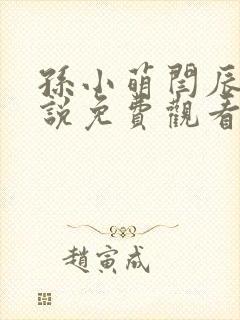 孫小萌閆辰
說免費觀看
趙寅成